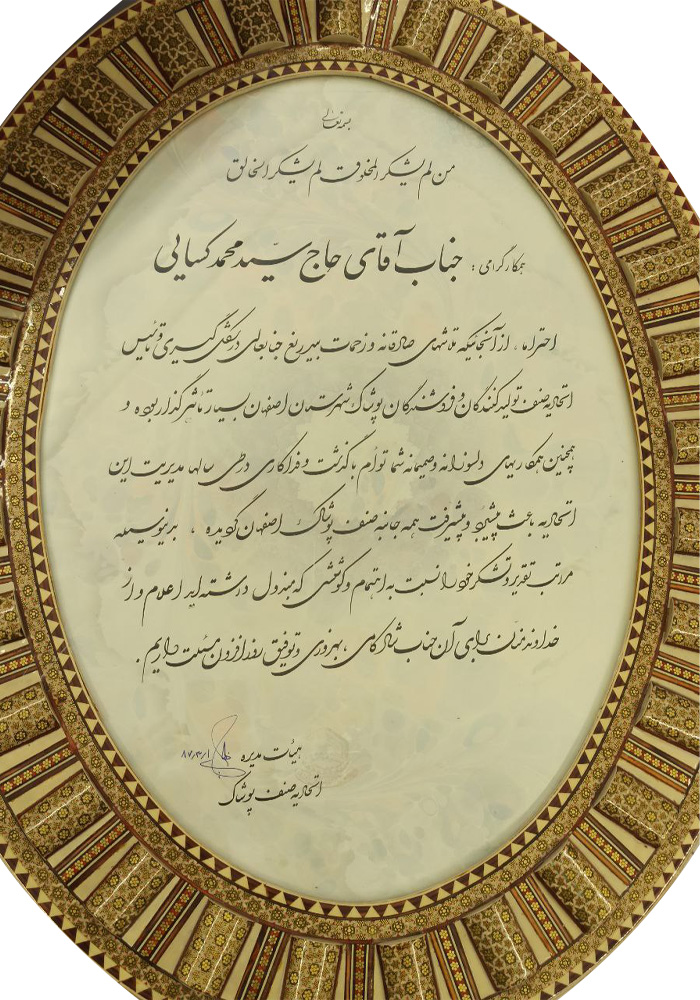 بسمه تعالی
من لم یشکر المخلوق لم یشکر الخالق
همکار گرامی : جناب آقای حاج سید محمد کسایی
احتراما ، از آنجائیکه تلاشهای صادقانه و زحمات بیدریغ جنابعالی در شکل گیری و تاسیس
اتحادیه صنف تولید کنندگان و فروشندگان پوشاک شهرستان اصفهان بسیار تاثیر گذار بوده و
همچنین همکاریهای دلسوزانه و صمیمانه شما توأم با گذشت و فداکاری در طی سالها مدیریت این
اتحادیه باعث پیشبرد و پیشرفت همه جانبه صنف پوشاک اصفهان گردیده ، بدینوسیله
مراتب تقدیر و تشکر خود را نسبت به اهتمام و کوششی که مبذول داشته اید اعلام و از
خداوند منان برای آن جناب شادکامی ، بهروزی و توفیق روزافزون مسئلت داریم .
هیئت مدیره ۸۷٫۳٫۱
اتحادیه صنف پوشاک